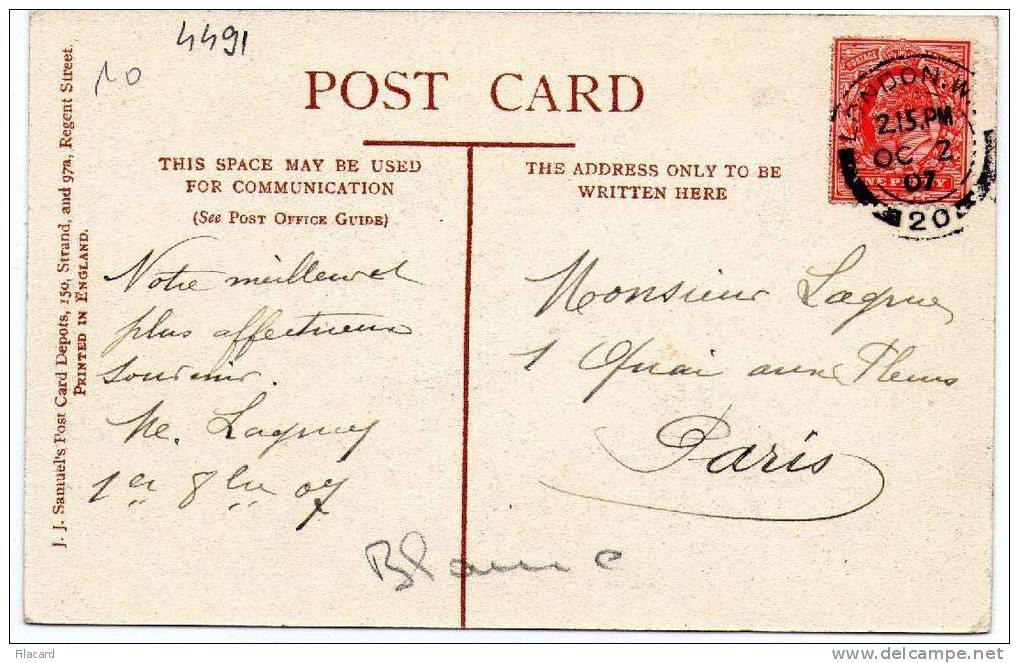 4491
10
POST CARD
THIS SPACE MAY BE USED
FOR COMMUNICATION
(See Post Office Guide)
THE ADDRESS ONLY TO BE
WRITTEN HERE
J. J. Samuel's Post Card Depots, 150, Strand, and 97a, Regent Street.
PRINTED IN ENGLAND.
POSTAGE
ONE PENNY
LONDON. W.
2.15. PM
OC 2
07
20
Notre meilleur et
plus affectueux
souvenir.
1er 8bre 07
Monsieur
1 Quai aux Fleurs
Paris
Filacard
www.delcampe.net